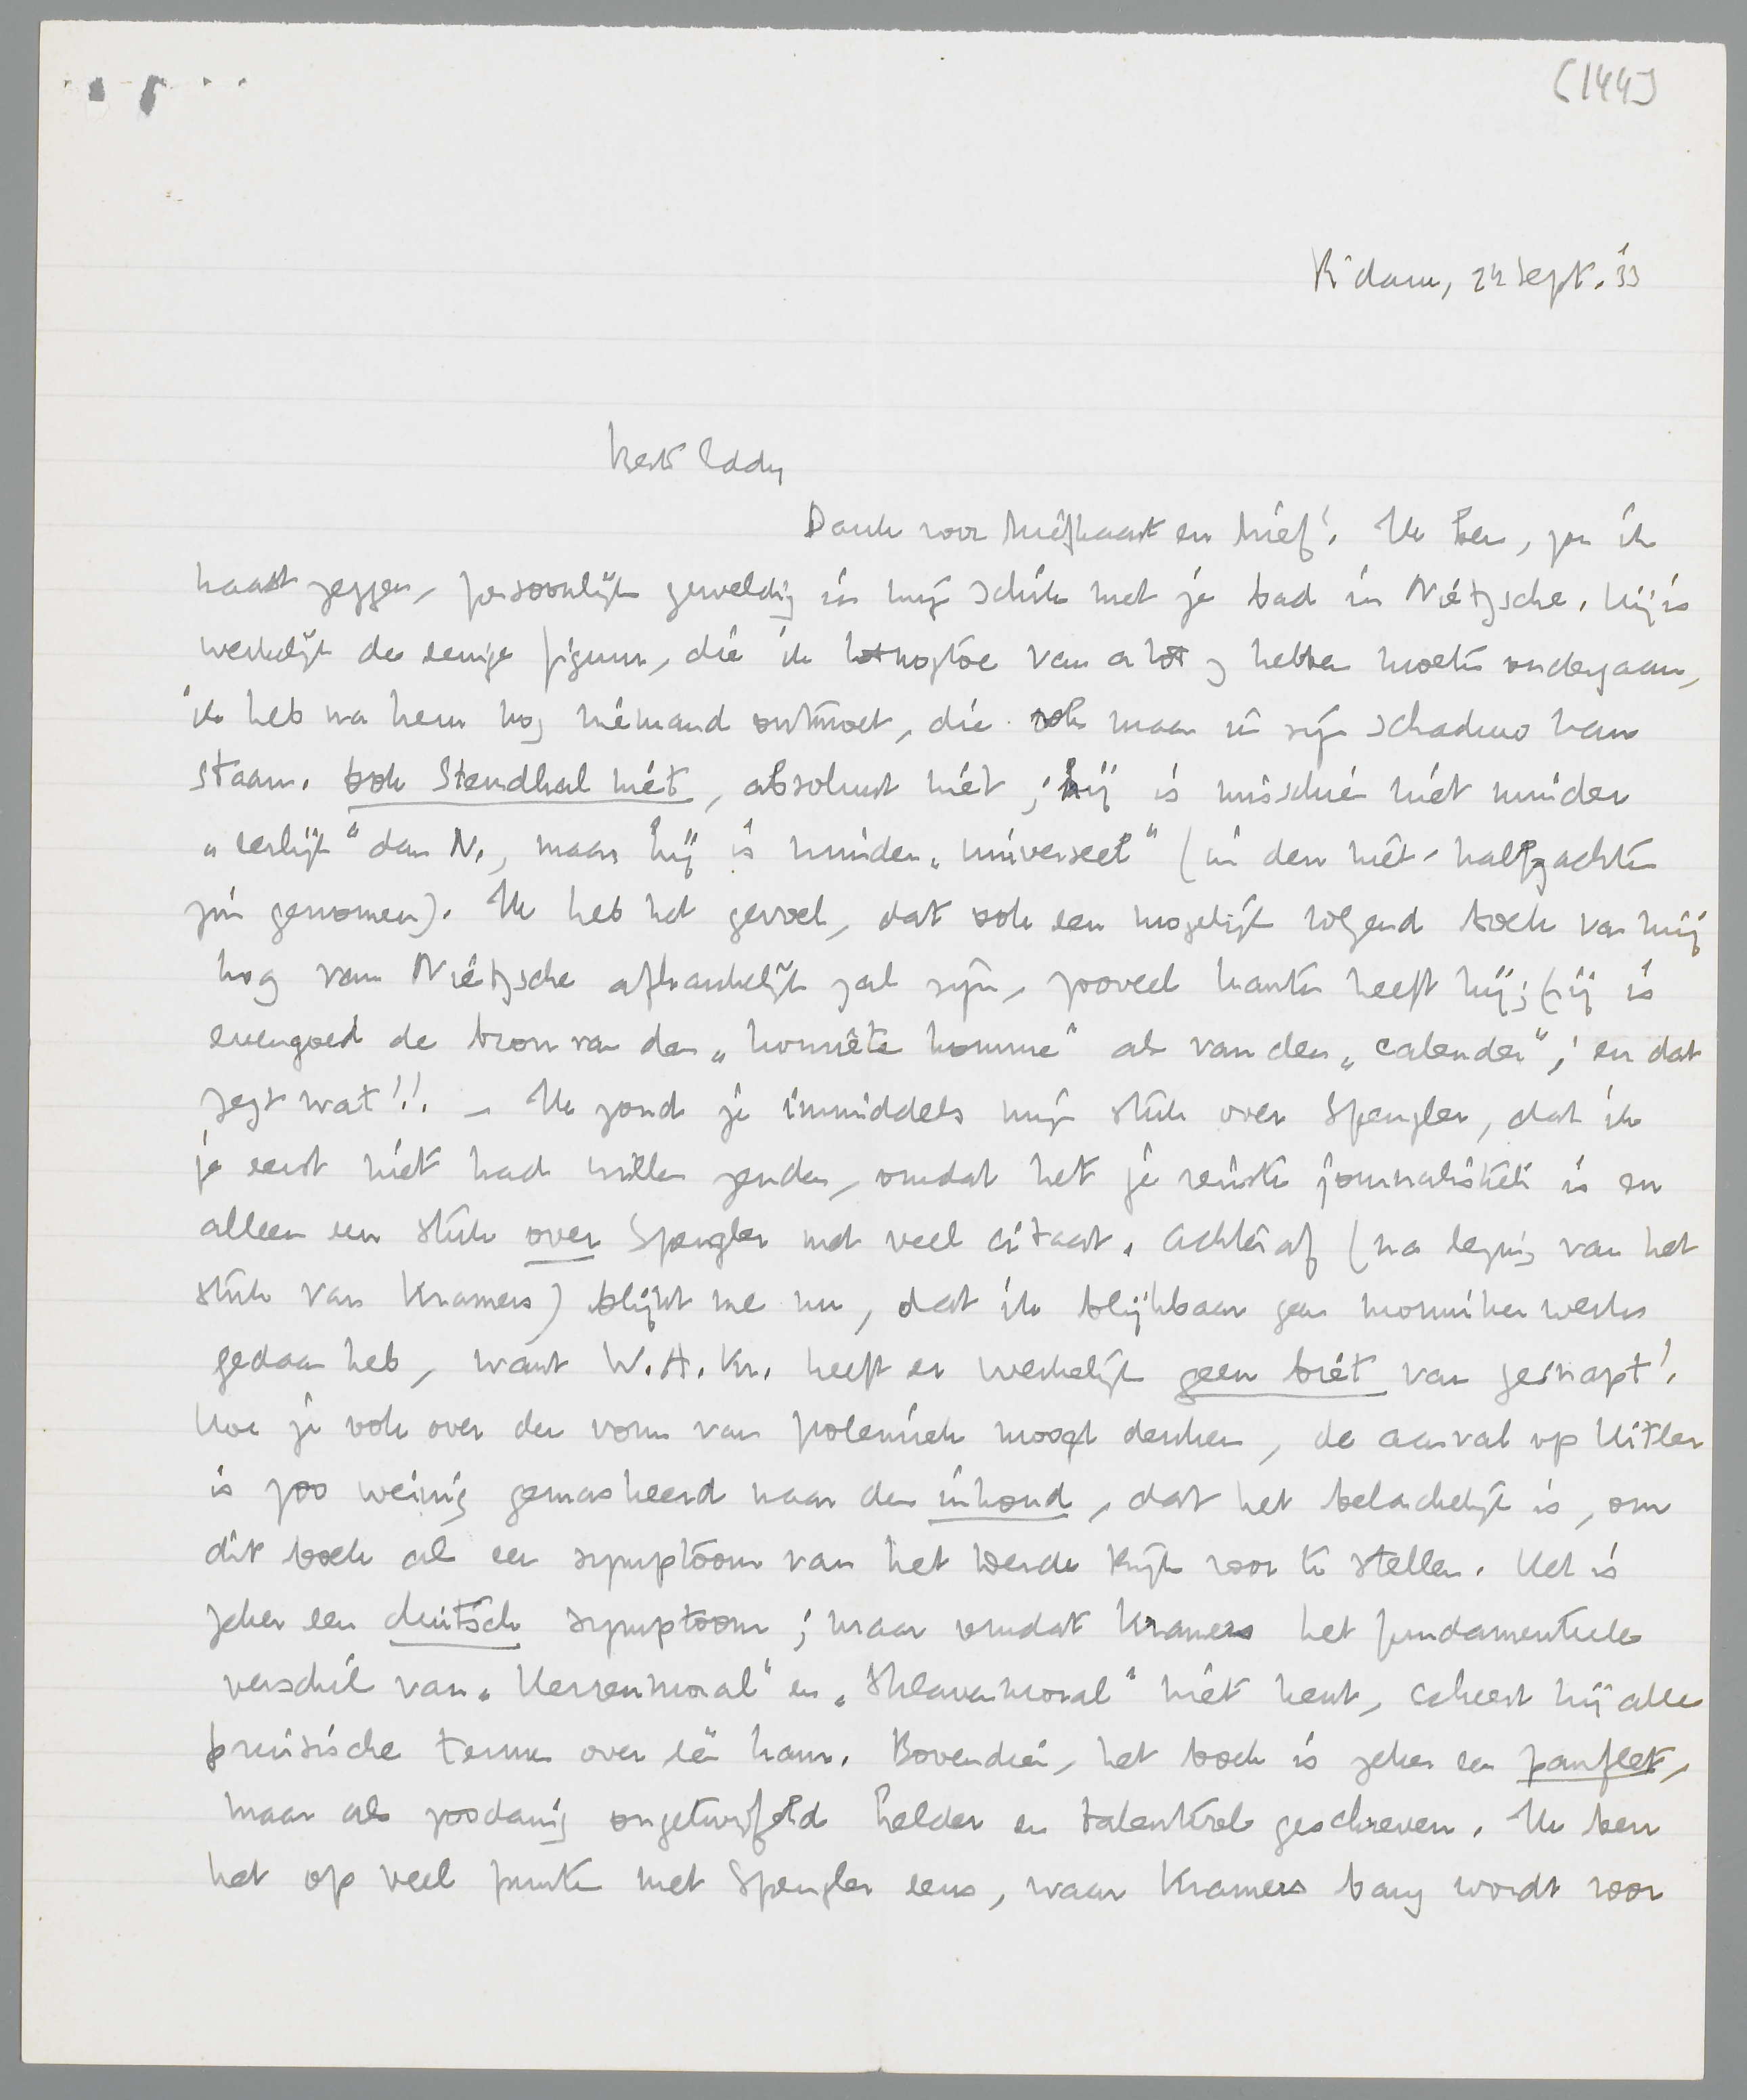 (144)
R'dam, 24 Sept. '33
Beste Eddy
Dank voor briefkaart en brief! Ik ben, zou ik
haast zeggen, persoonlijk geweldig in mijn schik met je bad in Nietzsche. Hij is
werkelijk de eenige figuur, die ik tot nogtoe van a tot z heb moeten ondergaan,
ik heb na hem nog niemand ontmoet, die ook maar in zijn schaduw kan
staan. Ook Stendhal niet, absoluut niet; hij is misschien niet minder
„eerlijk" dan N., maar hij is minder „universeel" (in den niet-halfzachten
zin genomen). Ik heb het gevoel, dat ook een mogelijk volgend boek van mij
nog van Nietzsche afhankelijk zal zijn, zooveel kanten heeft hij; hij is
evengoed de bron van den „honnête homme" als van den „calender"; en dat
zegt wat!! – Ik zond je inmiddels mijn stuk over Spengler, dat ik
je eerst niet had willen zenden, omdat het je reinste journalistiek is en
alleen een stuk over Spengler met veel citaat. Achteraf (na lezing van het
stuk van Kramers) blijkt me nu, dat ik blijkbaar geen monnikenwerk
gedaan heb, want W.A.Kr. heeft er werkelijk geen biet van gesnapt!
Hoe je ook over den vorm van polemiek moogt denken, de aanval op Hitler
is zoo weinig gemaskeerd naar den inhoud, dat het belachelijk is, om
dit boek als een symptoom van het Derde Rijk voor te stellen. Het is
zeker een duitsch symptoom; maar omdat Kramers het fundamenteele
verschil van „Herrenmoral" en „Sklavenmoral" niet kent, scheert hij alle
pruisische termen over één kam. Bovendien, het boek is zeker een pamflet,
maar als zoodanig ongetwijfeld helder en talentvol geschreven. Ik ben
het op veel punten met Spengler eens, waar Kramers bang wordt voor